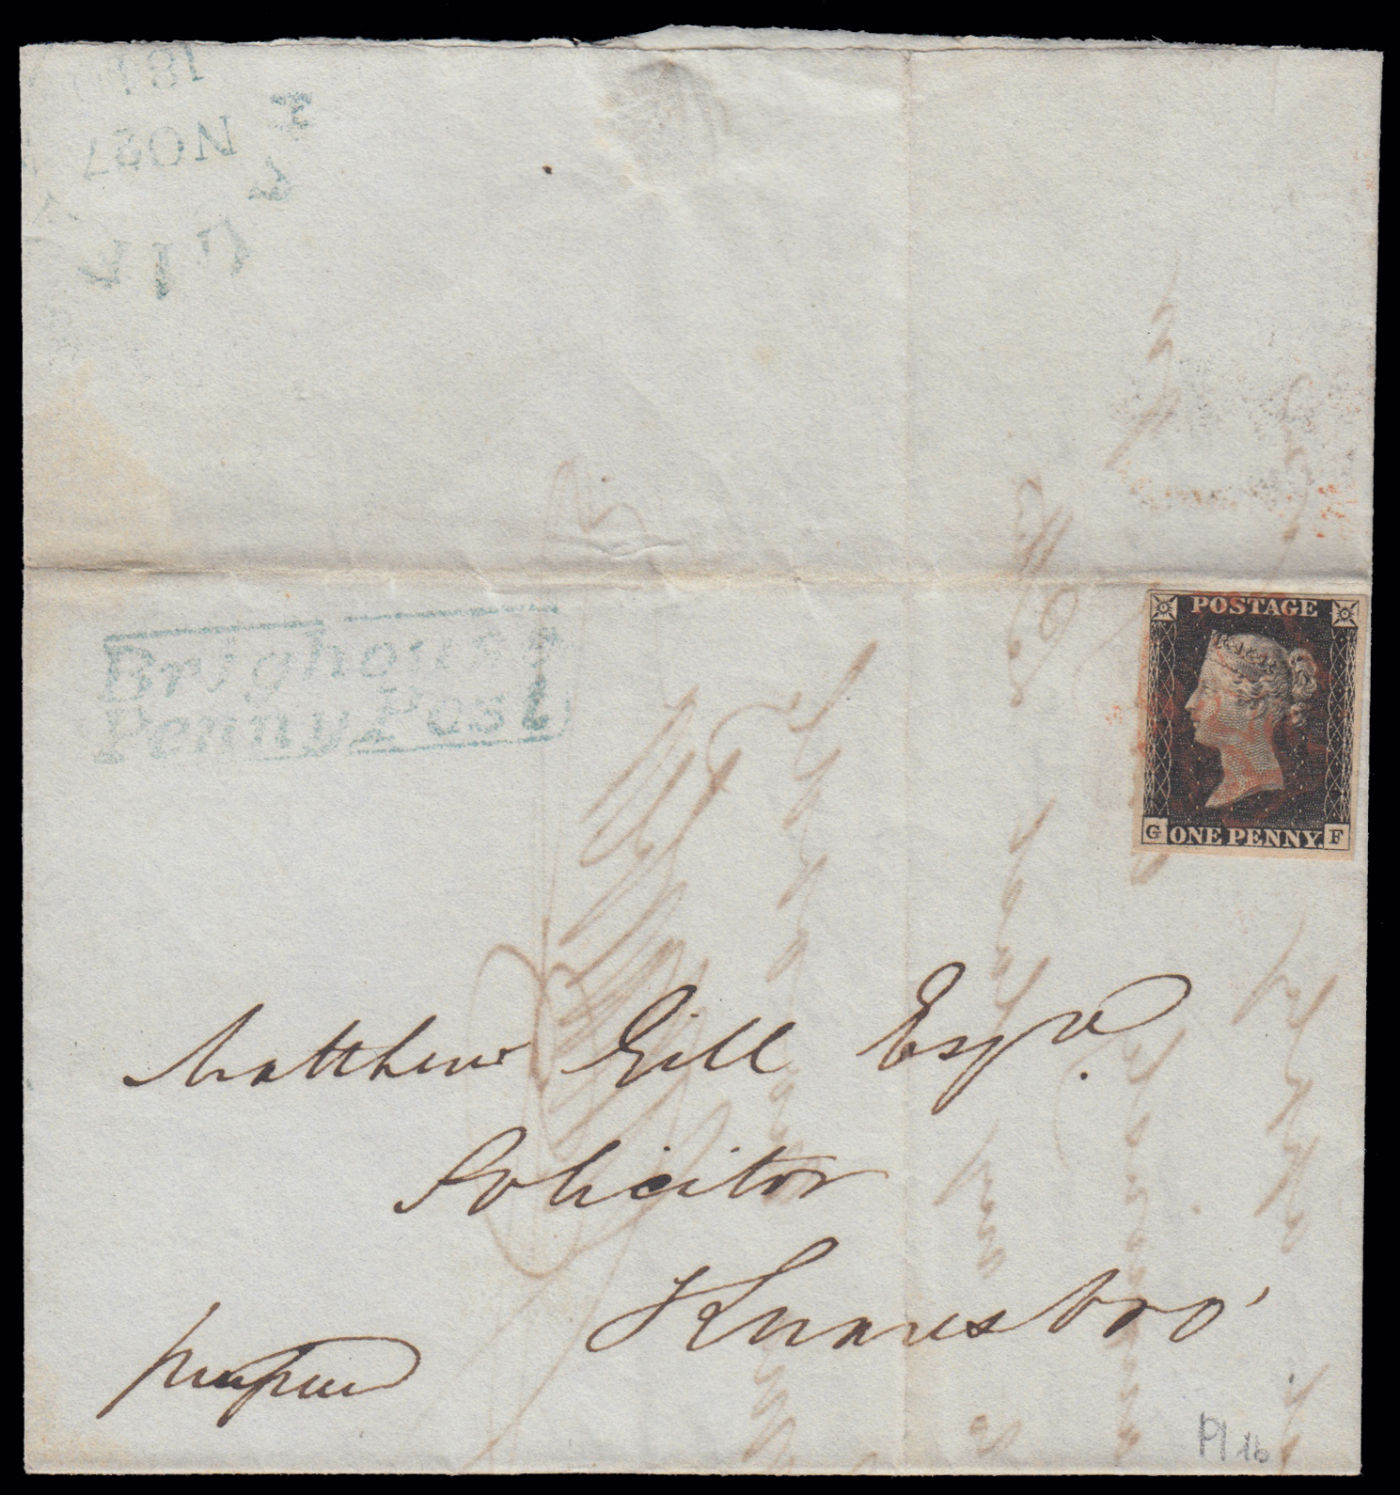 1840
NO27
Brighouse
Penny Post
POSTAGE
G ONE PENNY. F
Matthew Gill Esqre.
Solicitor
Knaresbro'
prepaid
Pl 1b